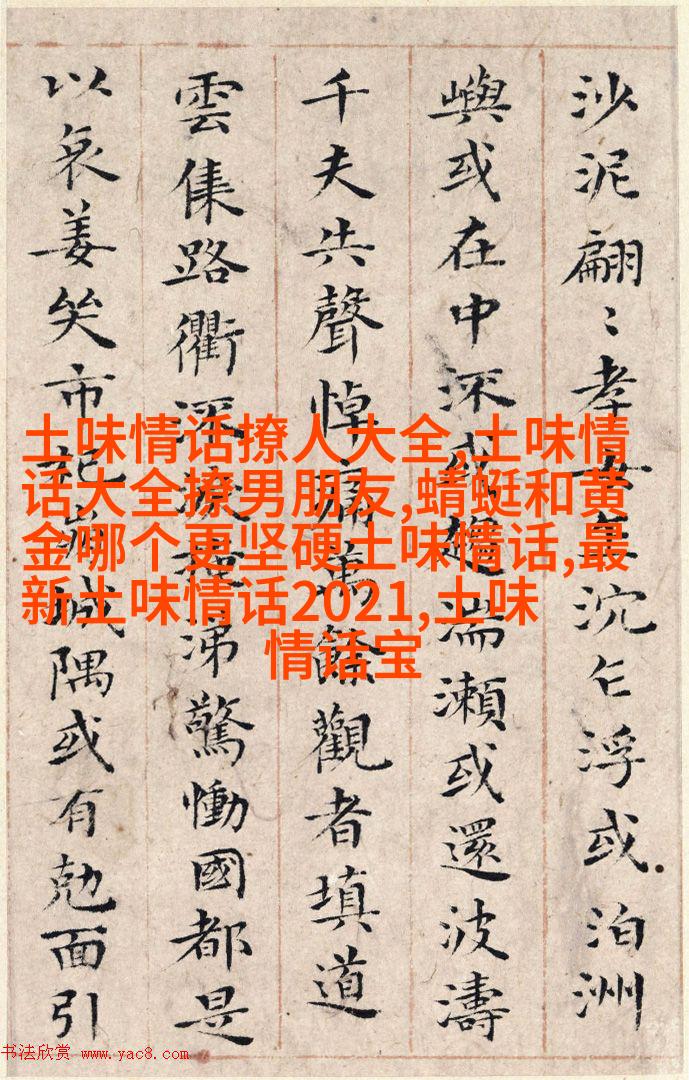 沙泥翩〻孝女乍沉乍浮或泊洲
嶼或在中流或趨湍瀨或還波濤
千夫失聲悼痛萬餘觀者填道
雲集路衢流淚掩涕驚慟國都是
以哀姜哭市杞崩城隅或有剋面引
土味情话撩人大全,土味情
话大全撩男朋友,蜻蜓和黄
金哪个更坚硬土味情话,最
新土味情话2021,土味
情话宝
书法欣赏 www.yac8.com